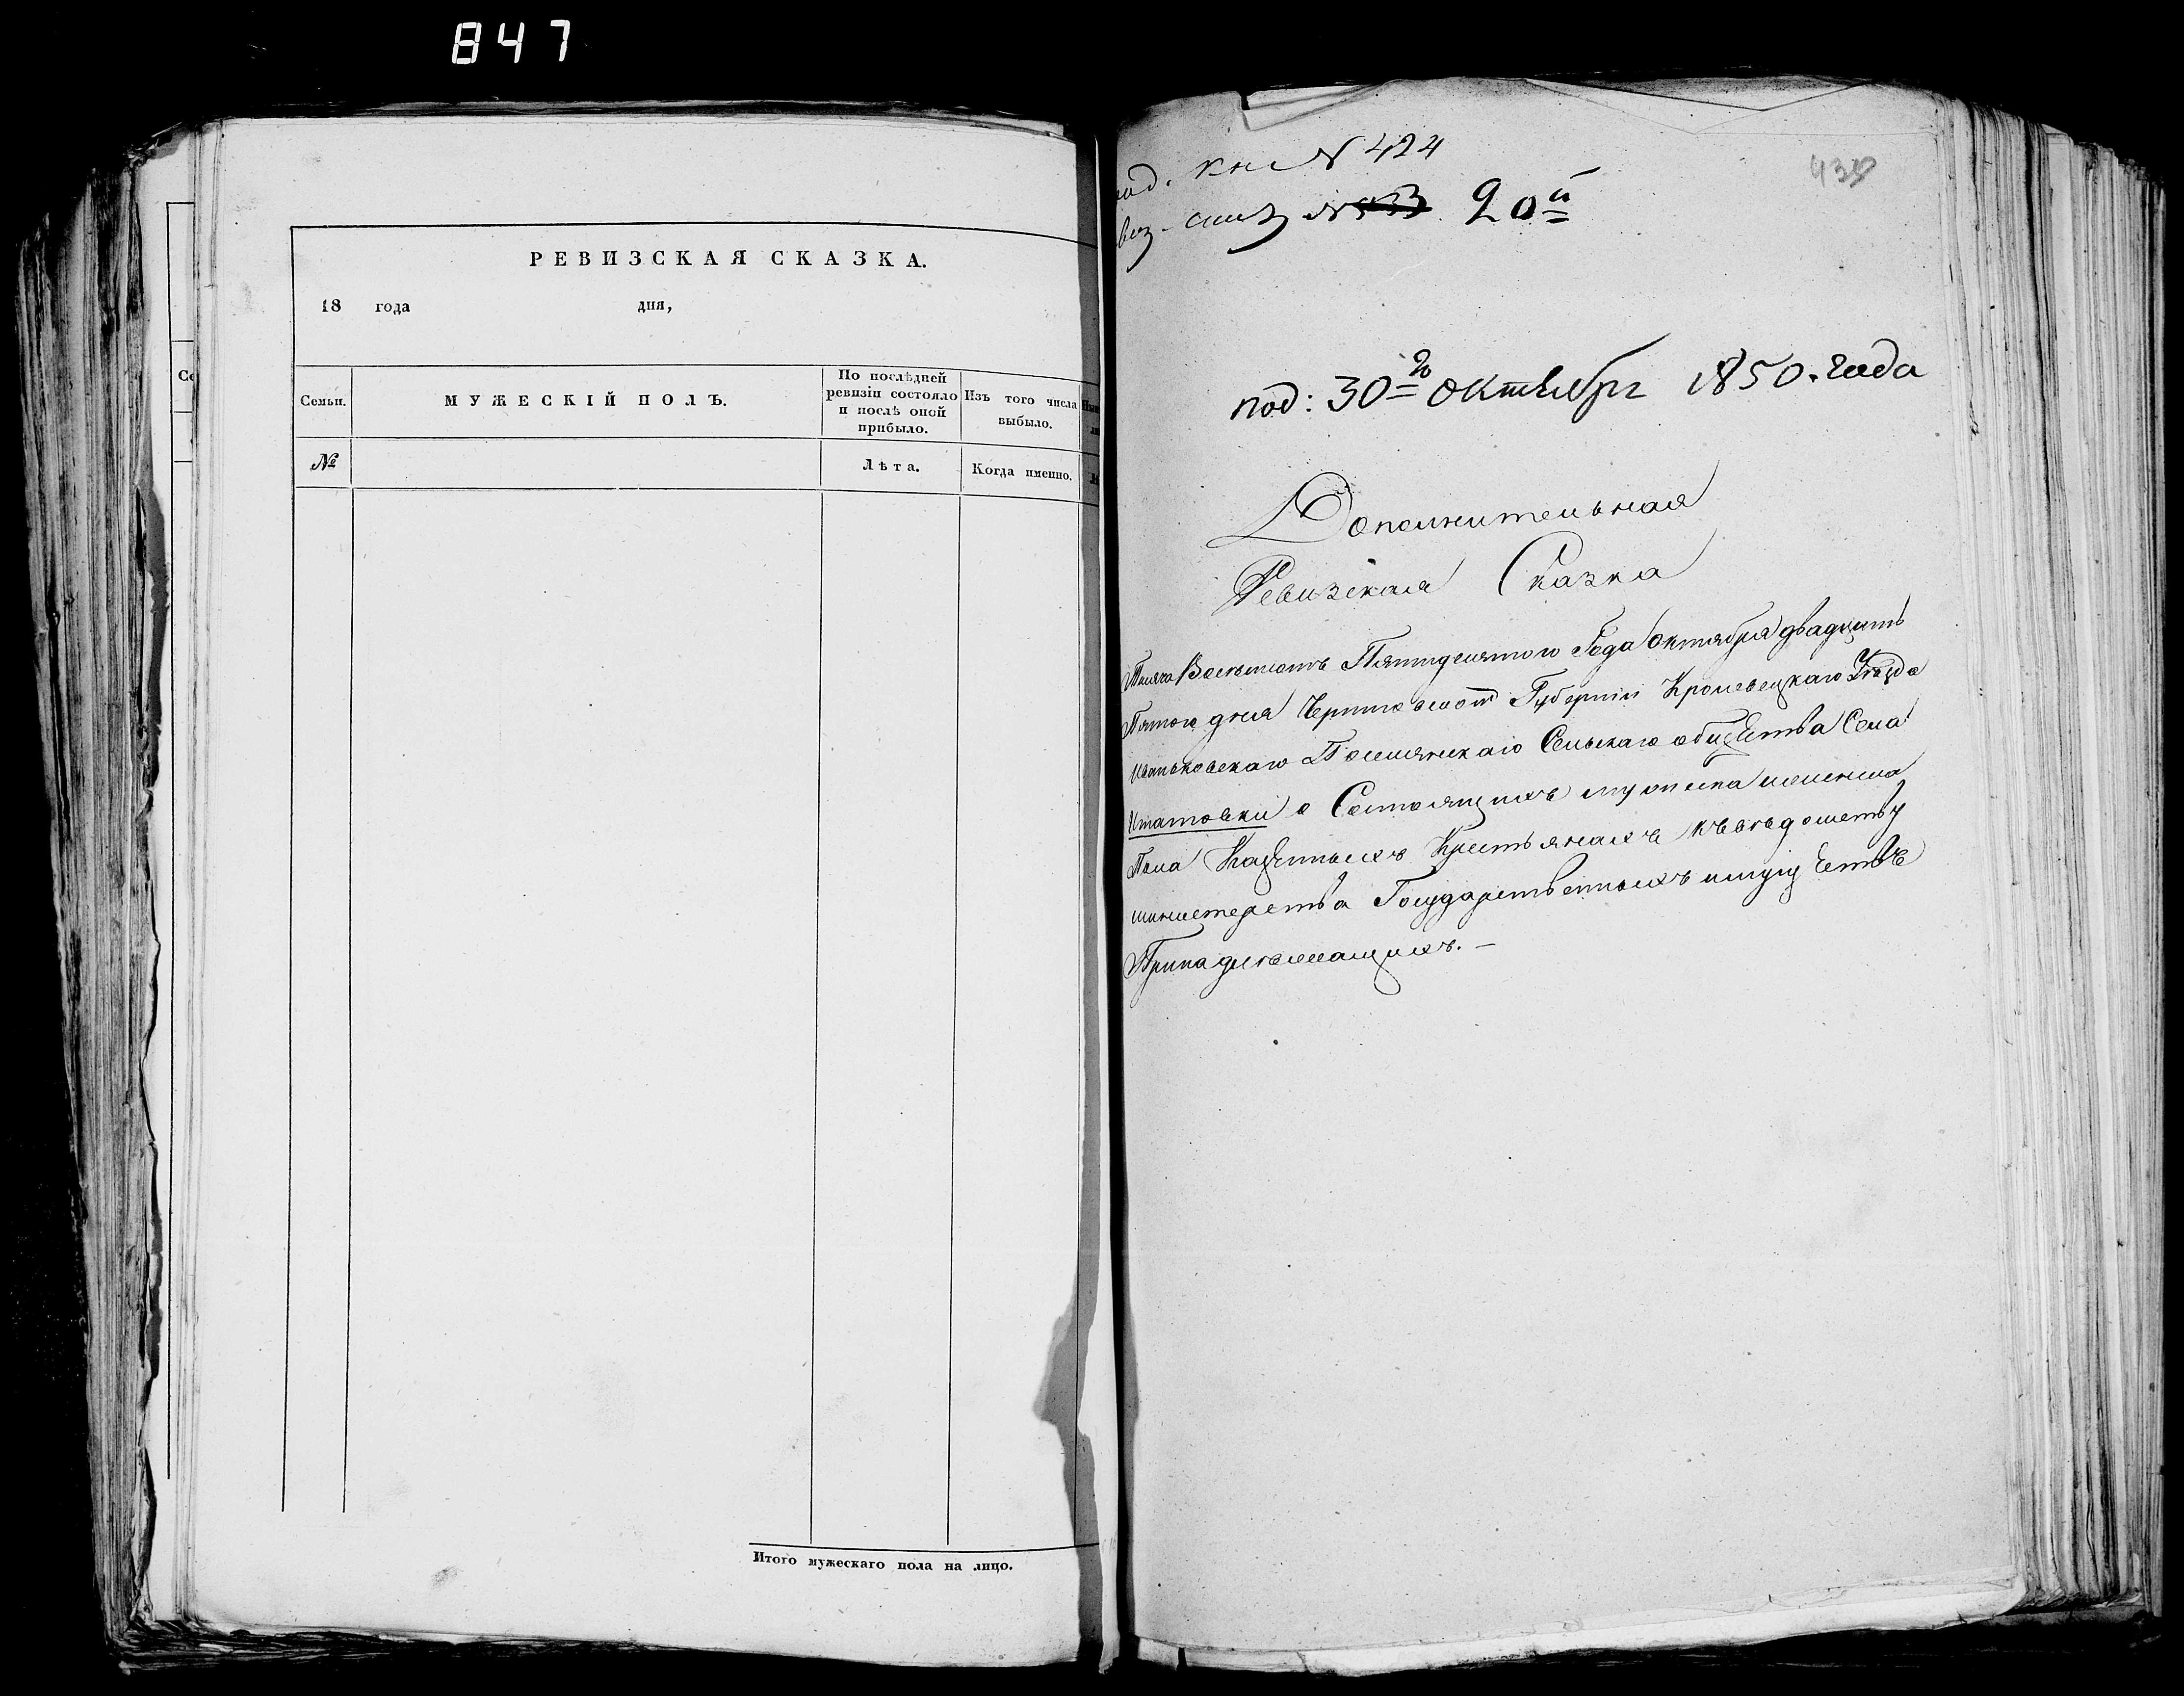 847
РЕВИЗСКАЯ СКАЗКА.
18 года дня,
Семьи.
МУЖЕСКІЙ ПОЛЪ.
По послѣдней ревизіи состояло и послѣ оной прибыло.
Изъ того числа выбыло.
№
Лѣта.
Когда именно.
Итого мужескаго пола на лицо.
под. кн N 424
20й
под: 30го октября 1850. года
Дополнительная
Ревизская Сказка
Тысяча Восемьсотъ Пятидесятого Года Октября двадцать
Пятого дня Черниговской Губерніи Кролевецкаго Уѣзда
Сельскаго общества Села
о Состоящихъ мужеска и женска
Пола Казенныхъ Крестьянахъ къ вѣдомству
министерства Государственныхъ имуществъ
Принадлежащихъ. —